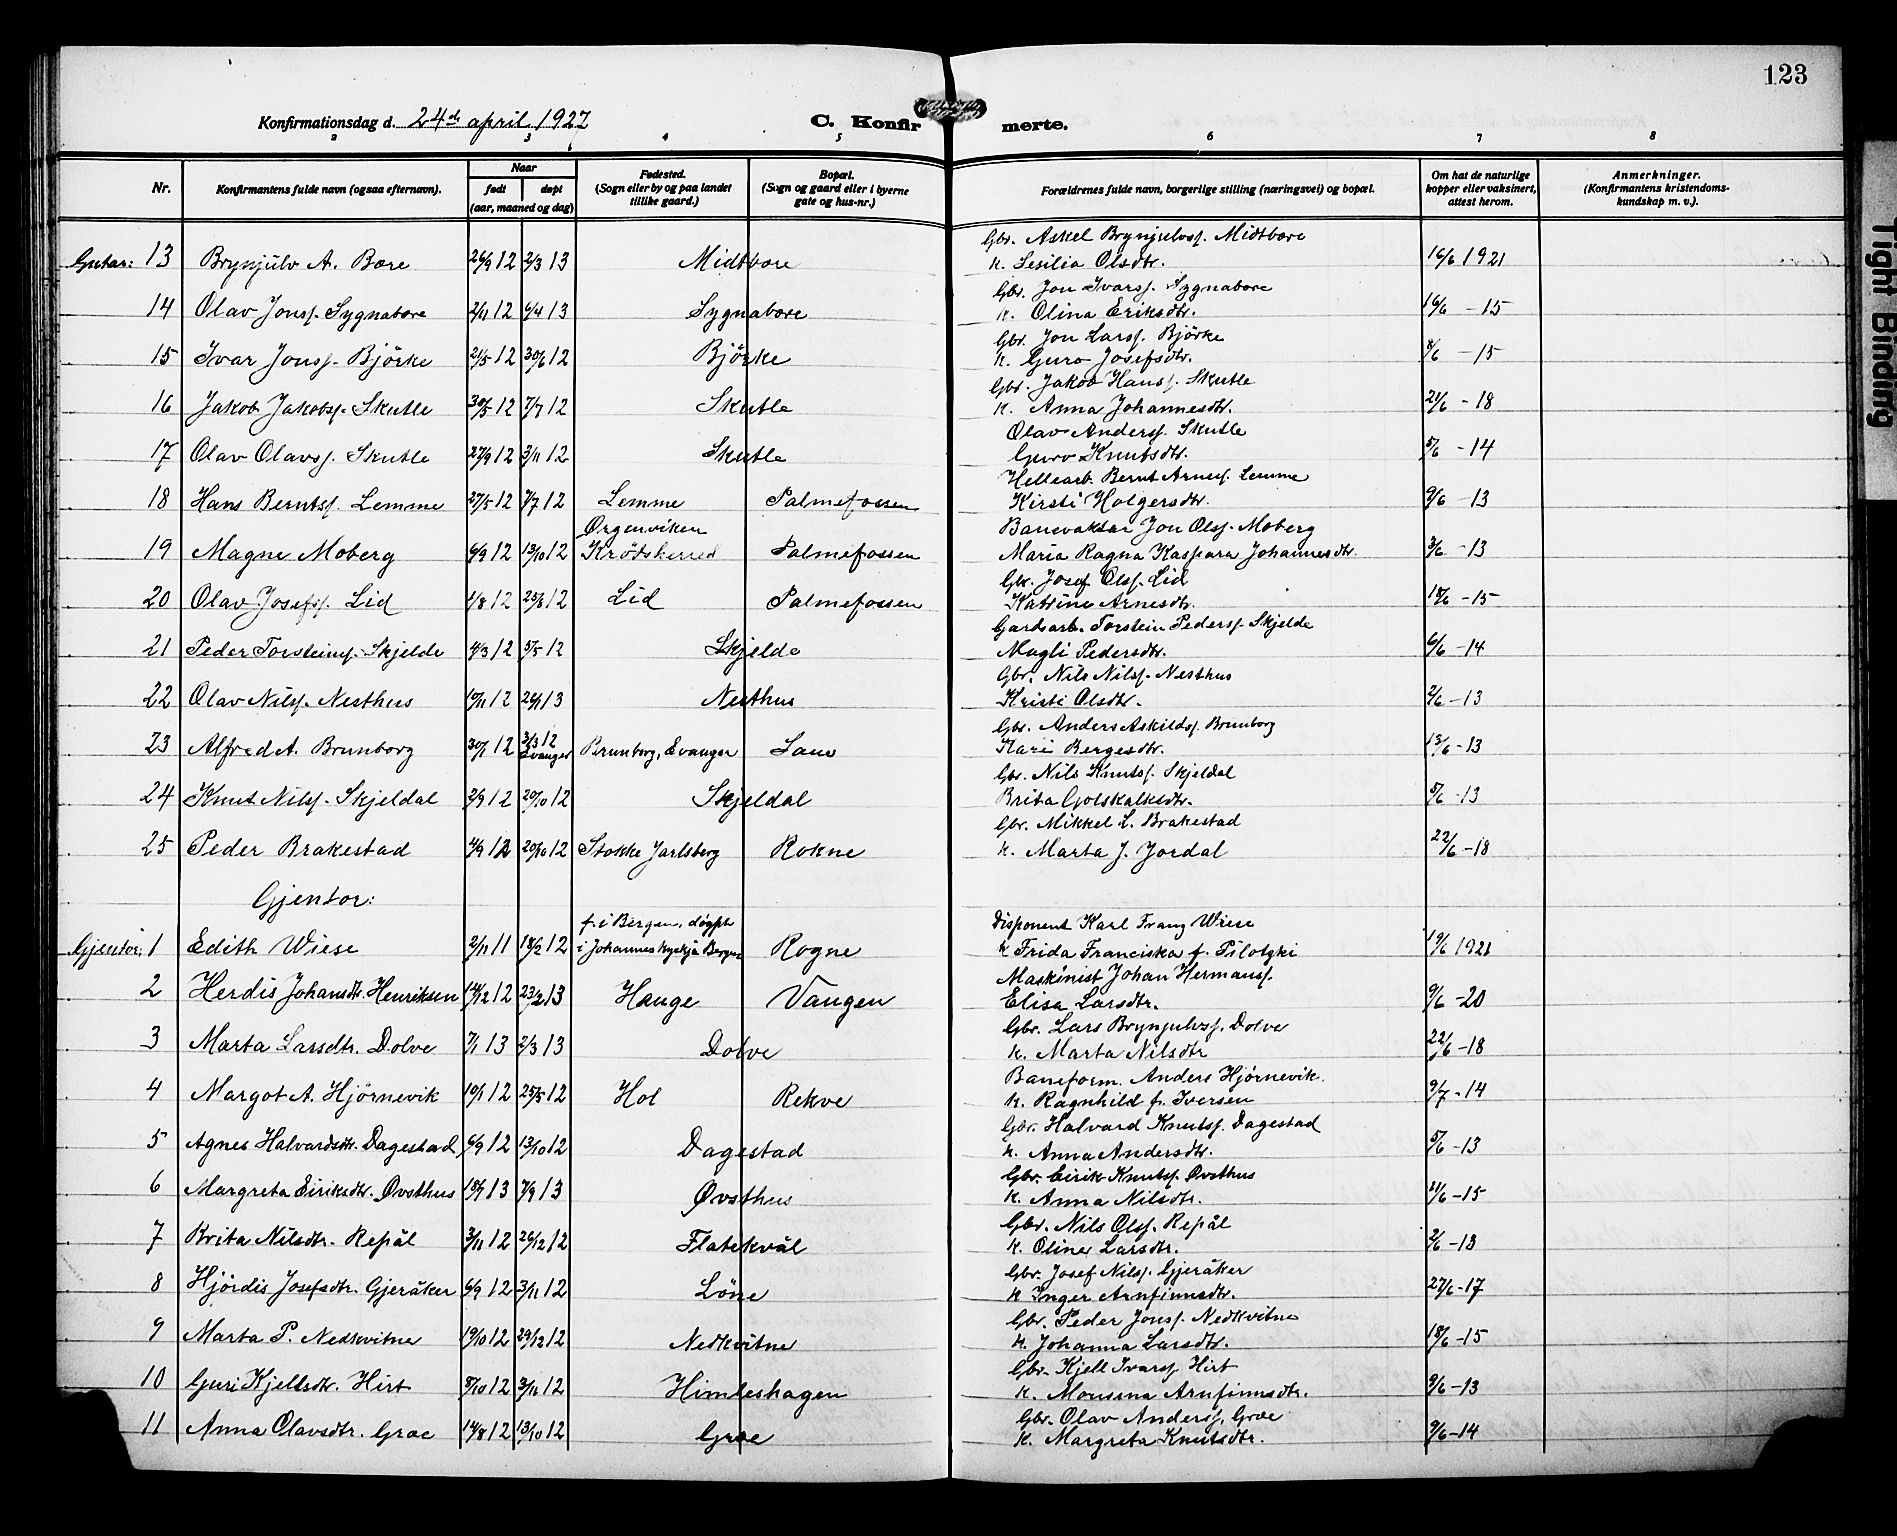 123
Konfirmationsdag d. 24de april 1927
C. Konfirmerte.
2 3 4 5 6 7 8
Nr.
Konfirmantens fulde navn (ogsaa efternavn).
Naar
født døpt
(aar, maaned og dag)
Fødested.
(Sogn eller by og paa landet
tillike gaard.)
Bopæl.
(Sogn og gaard eller i byerne
gate og hus-nr.)
Forældrenes fulde navn, borgerlige stilling (næringsvei) og bopæl.
Om hat de naturlige
kopper eller vaksinert,
attest herom.
Anmerkninger.
(Konfirmantens kristendoms-
kundskap m. v.).
Gbr. Askel Brynjulvss. Midtbøre
Gutar: 13 Brynjulv A. Børe 26/9 12 2/3 13 Midtbøre k. Sesilia Olsdtr. 16/6 1921
Gbr. Jon Ivarss. Sygnabøre
14 Olav Jonss. Sygnabøre 2/11 12 6/4 13 Sygnabøre k. Olina Eriksdtr. 16/6 - 15
Gbr. Jon Larss. Björke
15 Ivar Jonss. Björke 21/5 12 30/6 12 Björke k. Guro Josefsdtr. 8/6 - 15
Gbr. Jakob Hanss. Skutle
16 Jakob Jakobss. Skutle 30/5 12 7/7 12 Skutle k. Anna Johannesdtr. 21/6 - 18
Olav Anderss. Skutle
17 Olav Olavss. Skutle 27/9 12 3/11 12 Skutle Guro Knutsdtr. 5/6 - 14
Hellearb. Bernt Arness. Lemme
18 Hans Berntss. Lemme 27/5 12 7/7 12 Lemme Palmefossen Kirsti Holgersdtr. 9/6 - 13
Ørgenviken Banevaktar Jon Olss. Moberg
19 Magne Moberg 6/9 12 13/10 12 Krödsherred Palmefossen Maria Ragna Kaspara Johannesdtr. 3/6 - 13
Gbr. Josef Olss. Lid
20 Olav Josefss. Lid 1/8 12 25/8 12 Lid Palmefossen Katrine Arnesdtr. 18/6 - 15
Gardsarb. Torstein Pederss. Skjelde
21 Peder Torsteinss. Skjelde 4/3 12 5/5 12 Skjelde Magli Pedersdtr. 6/6 - 14
Gbr. Nils Nilss. Nesthus
22 Olav Nilss. Nesthus 10/11 12 26/1 13 Nesthus Kristi Olsdtr. 2/6 - 13
Gbr. Anders Askildss. Brunborg
23 Alfred A. Brunborg 30/1 12 3/3 12 Evanger Brunborg, Evanger Saue Kari Bergesdtr. 13/6 - 13
Gbr. Nils Knutss. Skjeldal
24 Knut Nilss. Skjeldal 2/9 12 20/10 12 Skjeldal Brita Gotskalksdtr. 5/6 - 13
Gbr. Mikkel L. Brakestad
25 Peder Brakestad 4/9 12 20/10 12 Stokke Jarlsberg Rokne k. Marta J. Jordal 22/6 - 18
Gjentor:
f. i Bergen, døypt Disponent Karl Franz Wiese
Gjentor: 1 Edith Wiese 2/11 11 18/2 12 i Johanneskyrkja Bergen Rogne k Frida Franciska f. Pilotzki 19/6 1921
Maskinist Johan Hermanss.
2 Herdis Johansdtr. Henriksen 14/12 12 23/2 13 Hauge Vangen Elisa Larsdtr. 9/6 - 20
Gbr. Lars Brynjulvss. Dolve
3 Marta Larsdtr. Dolve 7/1 13 2/3 13 Dolve k. Marta Nilsdtr 22/6 - 18
Baneform. Anders Hjörnevik.
4 Margot A. Hjörnevik 19/1 12 25/5 12 Hol Rekve k. Ragnhild f. Iversen 9/7 - 14
Gbr. Halvard Knutss. Dagestad
5 Agnes Halvardsdtr. Dagestad 6/9 12 13/10 12 Dagestad k. Anna Andersdtr. 5/6 - 13
Gbr. Eirik Knutss. Øvsthus
6 Margreta Eiriksdtr. Øvsthus 18/7 13 7/9 13 Øvsthus k. Anna Nilsdtr. 21/6 - 15
Gbr. Nils Olss. Repål
7 Brita Nilsdtr. Repål 3/11 12 26/12 12 Flatekvål k. Oline Larsdtr. 2/6 - 13
Gbr. Josef Nilss. Gjeråker
8 Hjördis Josefsdtr. Gjeråker 6/9 12 3/11 12 Löne k Inger Arnfinnsdtr. 27/6 - 17
Gbr. Peder Jonss. Nedkvitne
9 Marta P. Nedkvitne 19/10 12 29/12 12 Nedkvitne k. Johanna Larsdtr. 18/6 - 15
Gbr. Kjell Ivarss. Hirt
10 Guri Kjellsdtr. Hirt 8/10 12 3/11 12 Himleshagen k. Monsina Arnfinnsdtr. 9/6 - 13
Gbr. Olav Anderss. Grøe
11 Anna Olavsdtr. Grøe 14/8 12 13/10 12 Grøe k. Margreta Knutsdtr. 9/6 - 14
Tight Binding